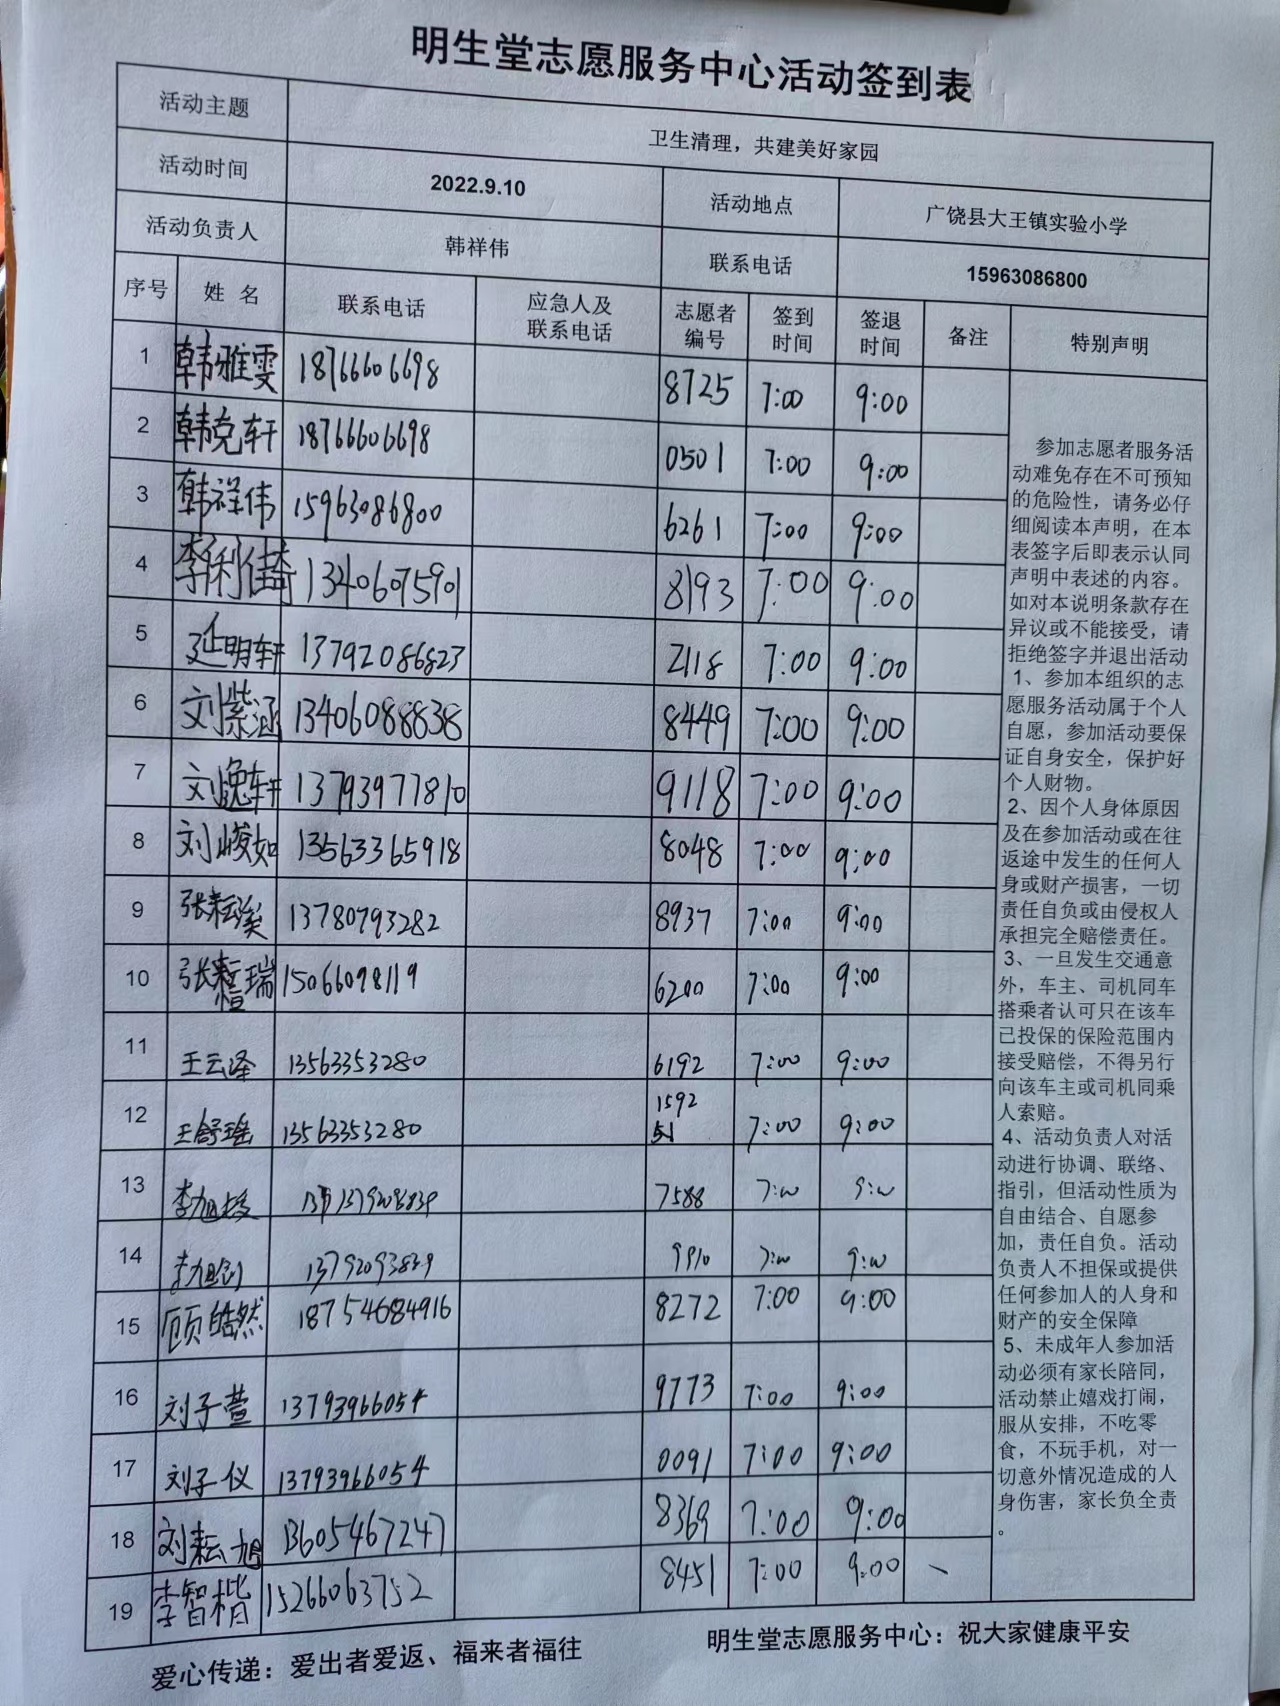 明生堂志愿服务中心活动签到表
活动主题 卫生清理，共建美好家园
活动时间 2022.9.10 活动地点 广饶县大王镇实验小学
活动负责人 韩祥伟 联系电话 15963086800
序号 姓 名 联系电话 应急人及联系电话 志愿者编号 签到时间 签退时间 备注 特别声明
1 韩雅雯 18766606698 8725 7:00 9:00
2 韩克轩 18766606698 0501 7:00 9:00
3 韩祥伟 15963086800 6261 7:00 9:00
4 13406075901 8193 7:00 9:00
5 延明轩 13792086823 2118 7:00 9:00
6 刘紫涵 13406088838 8449 7:00 9:00
7 刘逸轩 13793977810 9118 7:00 9:00
8 刘峻如 13563365918 8048 7:00 9:00
9 张耘溪 13780793282 8937 7:00 9:00
10 15066098119 6200 7:00 9:00
11 王云泽 13563353280 6192 7:00 9:00
12 王舒瑶 13563353280 1592 7:00 9:00
13 7588 7:00 9:00
14 13792093839 9910 7:00 9:00
15 顾皓然 18754684916 8272 7:00 9:00
16 刘子萱 13793966054 9773 7:00 9:00
17 刘子仪 13793966054 0091 7:00 9:00
18 刘耘旭 13605467247 8369 7:00 9:00
19 李智楷 15266063752 8451 7:00 9:00
参加志愿者服务活
动难免存在不可预知
的危险性，请务必仔
细阅读本声明，在本
表签字后即表示认同
声明中表述的内容。
如对本说明条款存在
异议或不能接受，请
拒绝签字并退出活动
1、参加本组织的志
愿服务活动属于个人
自愿，参加活动要保
证自身安全，保护好
个人财物。
2、因个人身体原因
及在参加活动或在往
返途中发生的任何人
身或财产损害，一切
责任自负或由侵权人
承担完全赔偿责任。
3、一旦发生交通意
外，车主、司机同车
搭乘者认可只在该车
已投保的保险范围内
接受赔偿，不得另行
向该车主或司机同乘
人索赔。
4、活动负责人对活
动进行协调、联络、
指引，但活动性质为
自由结合、自愿参
加，责任自负。活动
负责人不担保或提供
任何参加人的人身和
财产的安全保障
5、未成年人参加活
动必须有家长陪同，
活动禁止嬉戏打闹，
服从安排，不吃零
食，不玩手机，对一
切意外情况造成的人
身伤害，家长负全责
。
爱心传递：爱出者爱返、福来者福往 明生堂志愿服务中心：祝大家健康平安